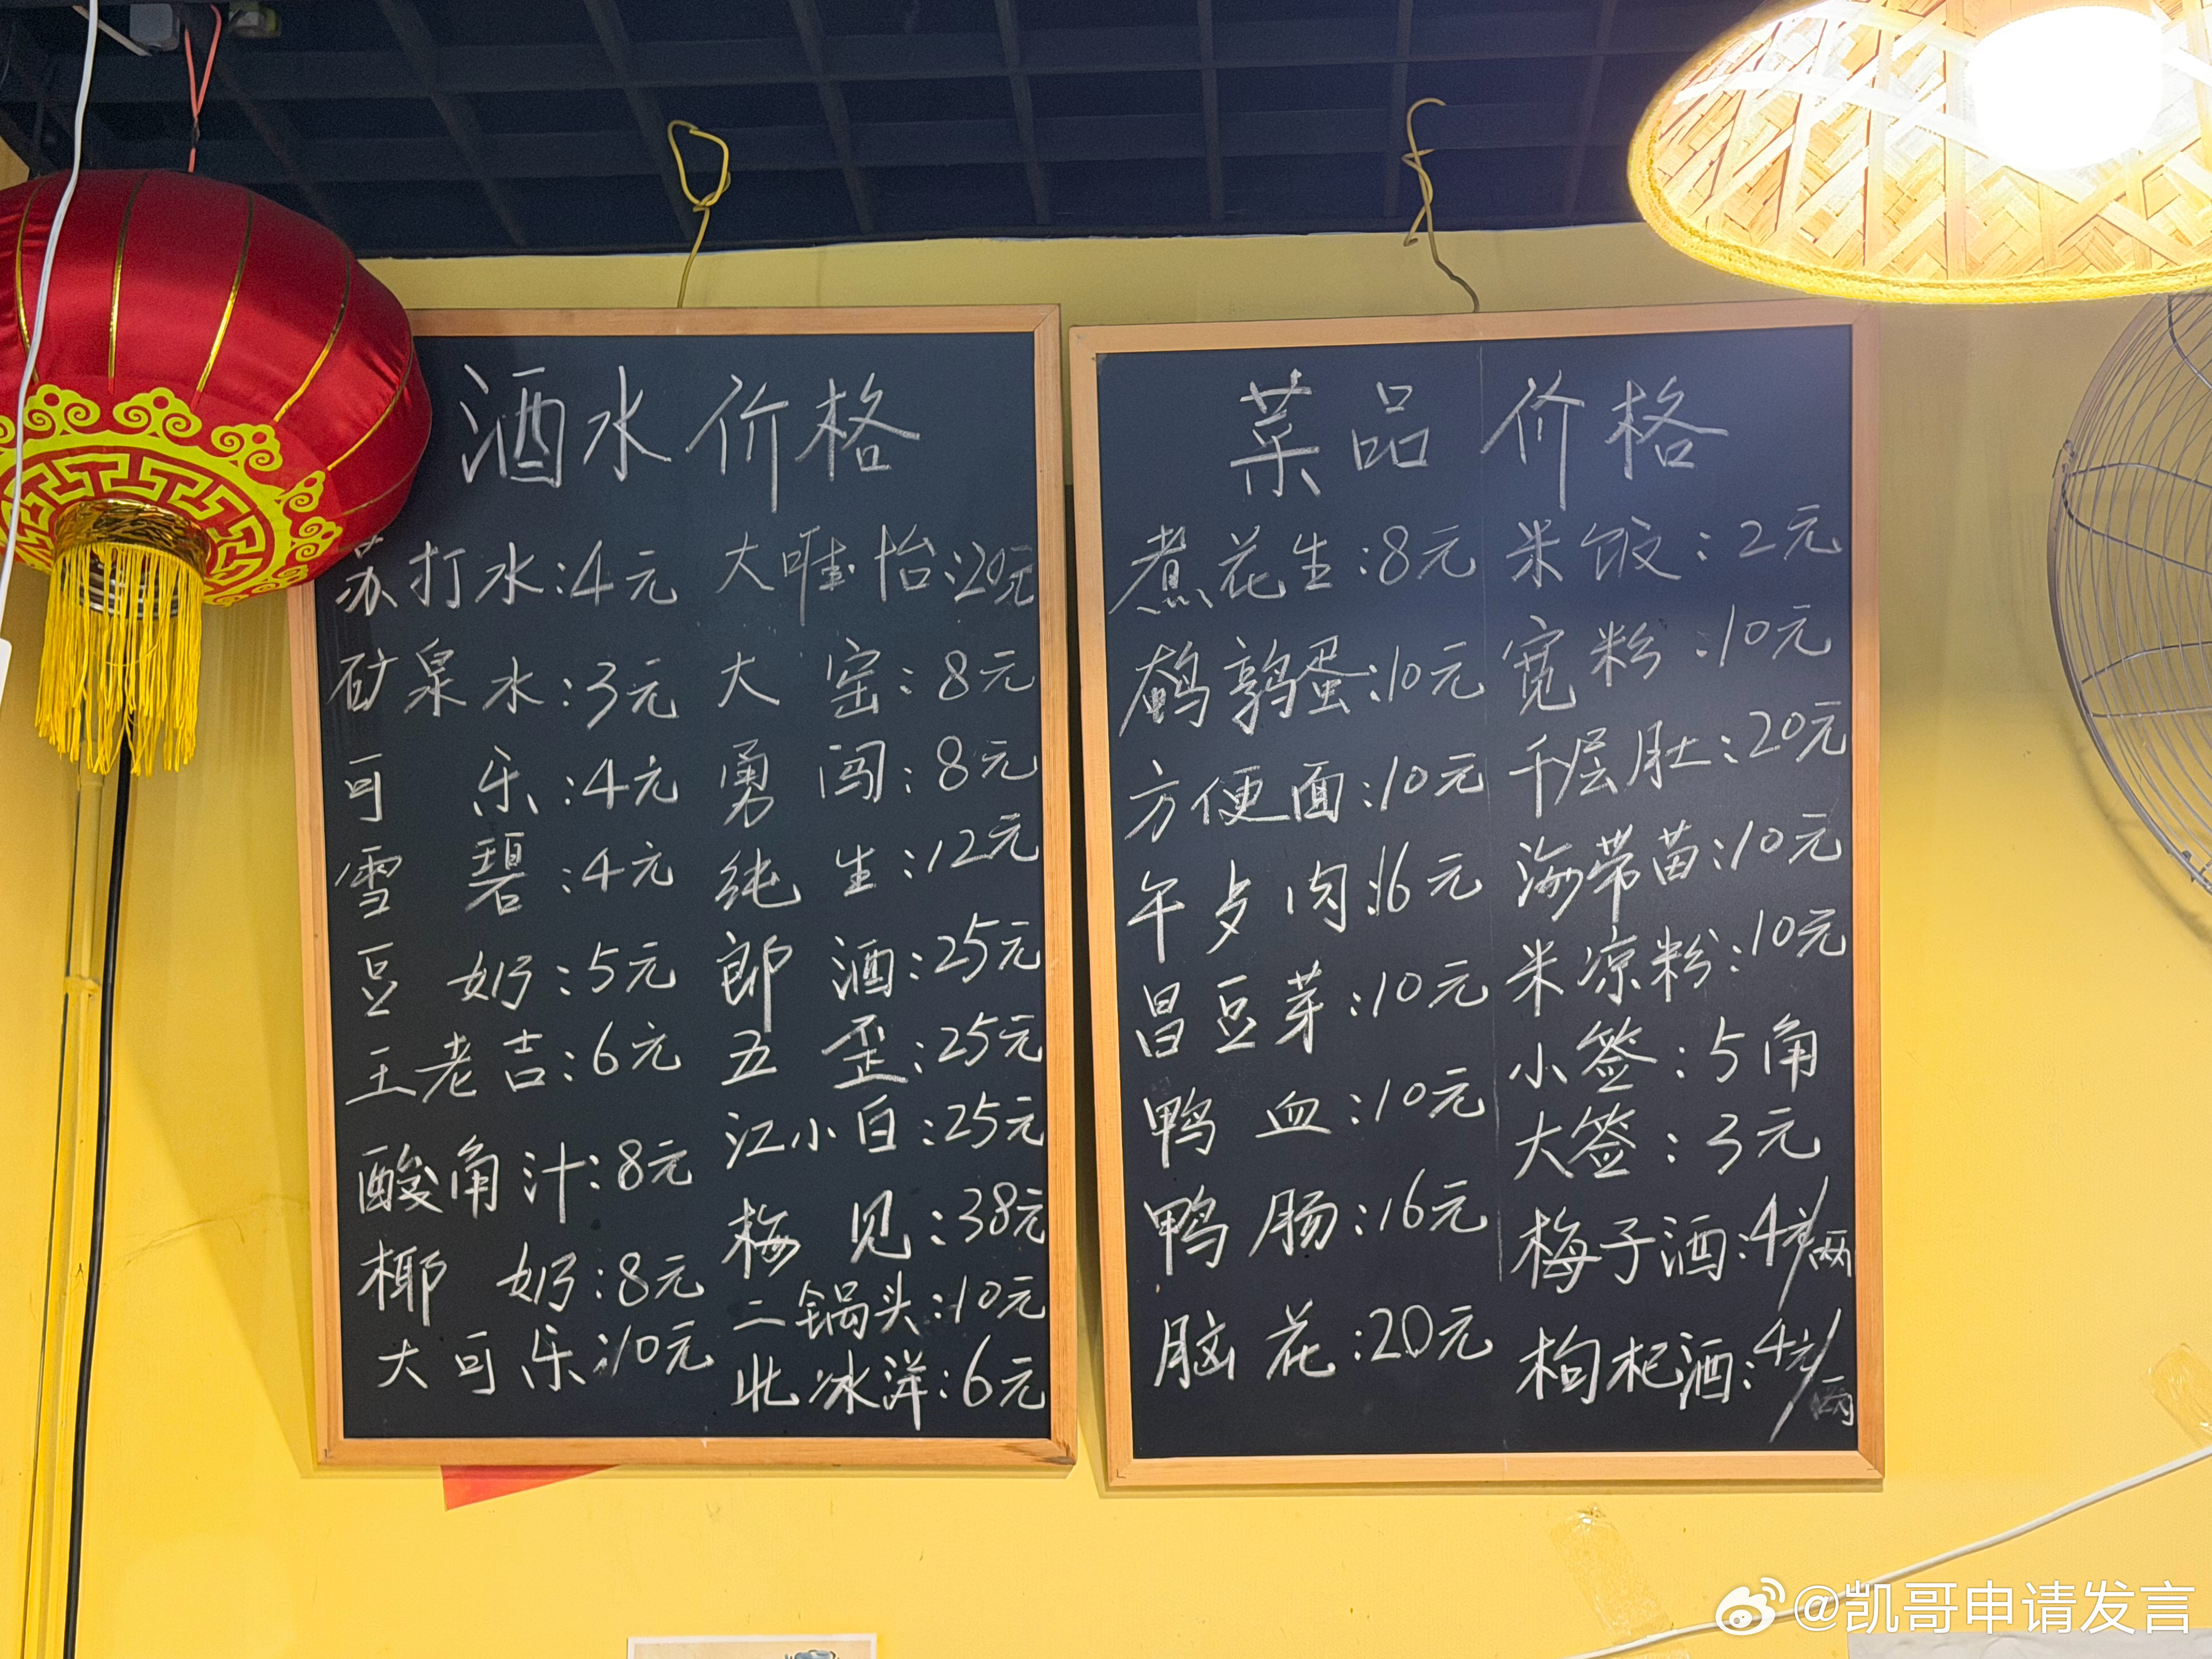 酒水价格
苏打水:4元
矿泉水:3元
可乐:4元
雪碧:4元
豆奶:5元
王老吉:6元
酸角汁:8元
椰奶:8元
大可乐:10元
大唯怡:20元
大窑:8元
勇闯:8元
纯生:12元
郎酒:25元
五歪:25元
江小白:25元
梅见:38元
二锅头:10元
北冰洋:6元
菜品价格
煮花生:8元
鹌鹑蛋:10元
方便面:10元
午歺肉:16元
昌豆芽:10元
鸭血:10元
鸭肠:16元
脑花:20元
米饭:2元
宽粉:10元
千层肚:20元
海带苗:10元
米凉粉:10元
小签:5角
大签:3元
梅子酒:4元/两
枸杞酒:4元/两
@凯哥申请发言